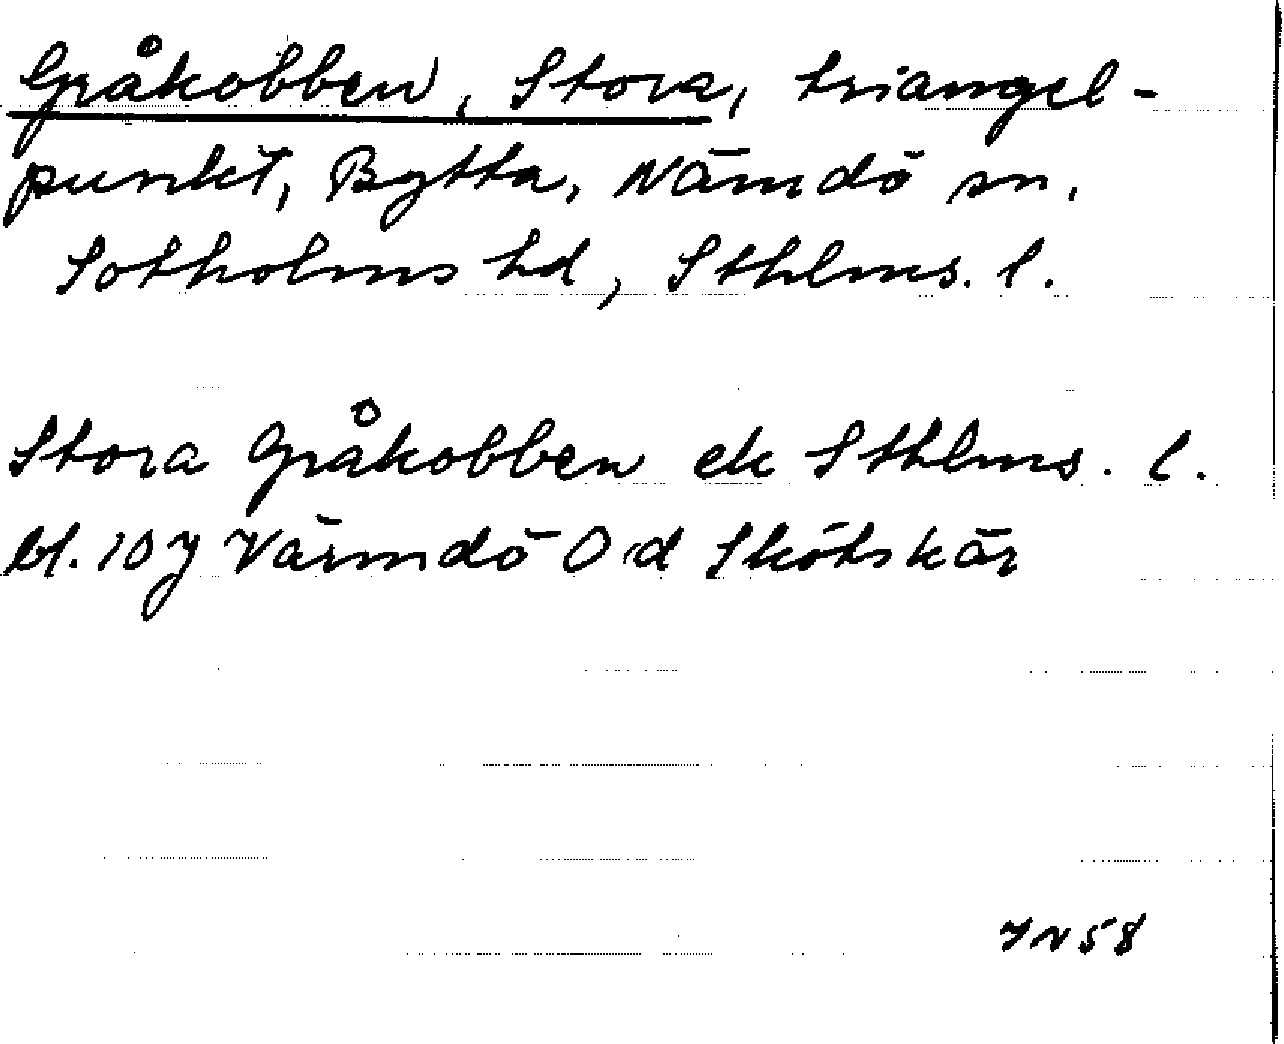 Gråkobben, Stora, triangel-
punkt, Bytta, Nämdö sn,
Sotholms hd, Sthlms. l.
Stora Gråkobben ek Sthlms. l.
bl. 10J Värmdö Od Skötskär
58